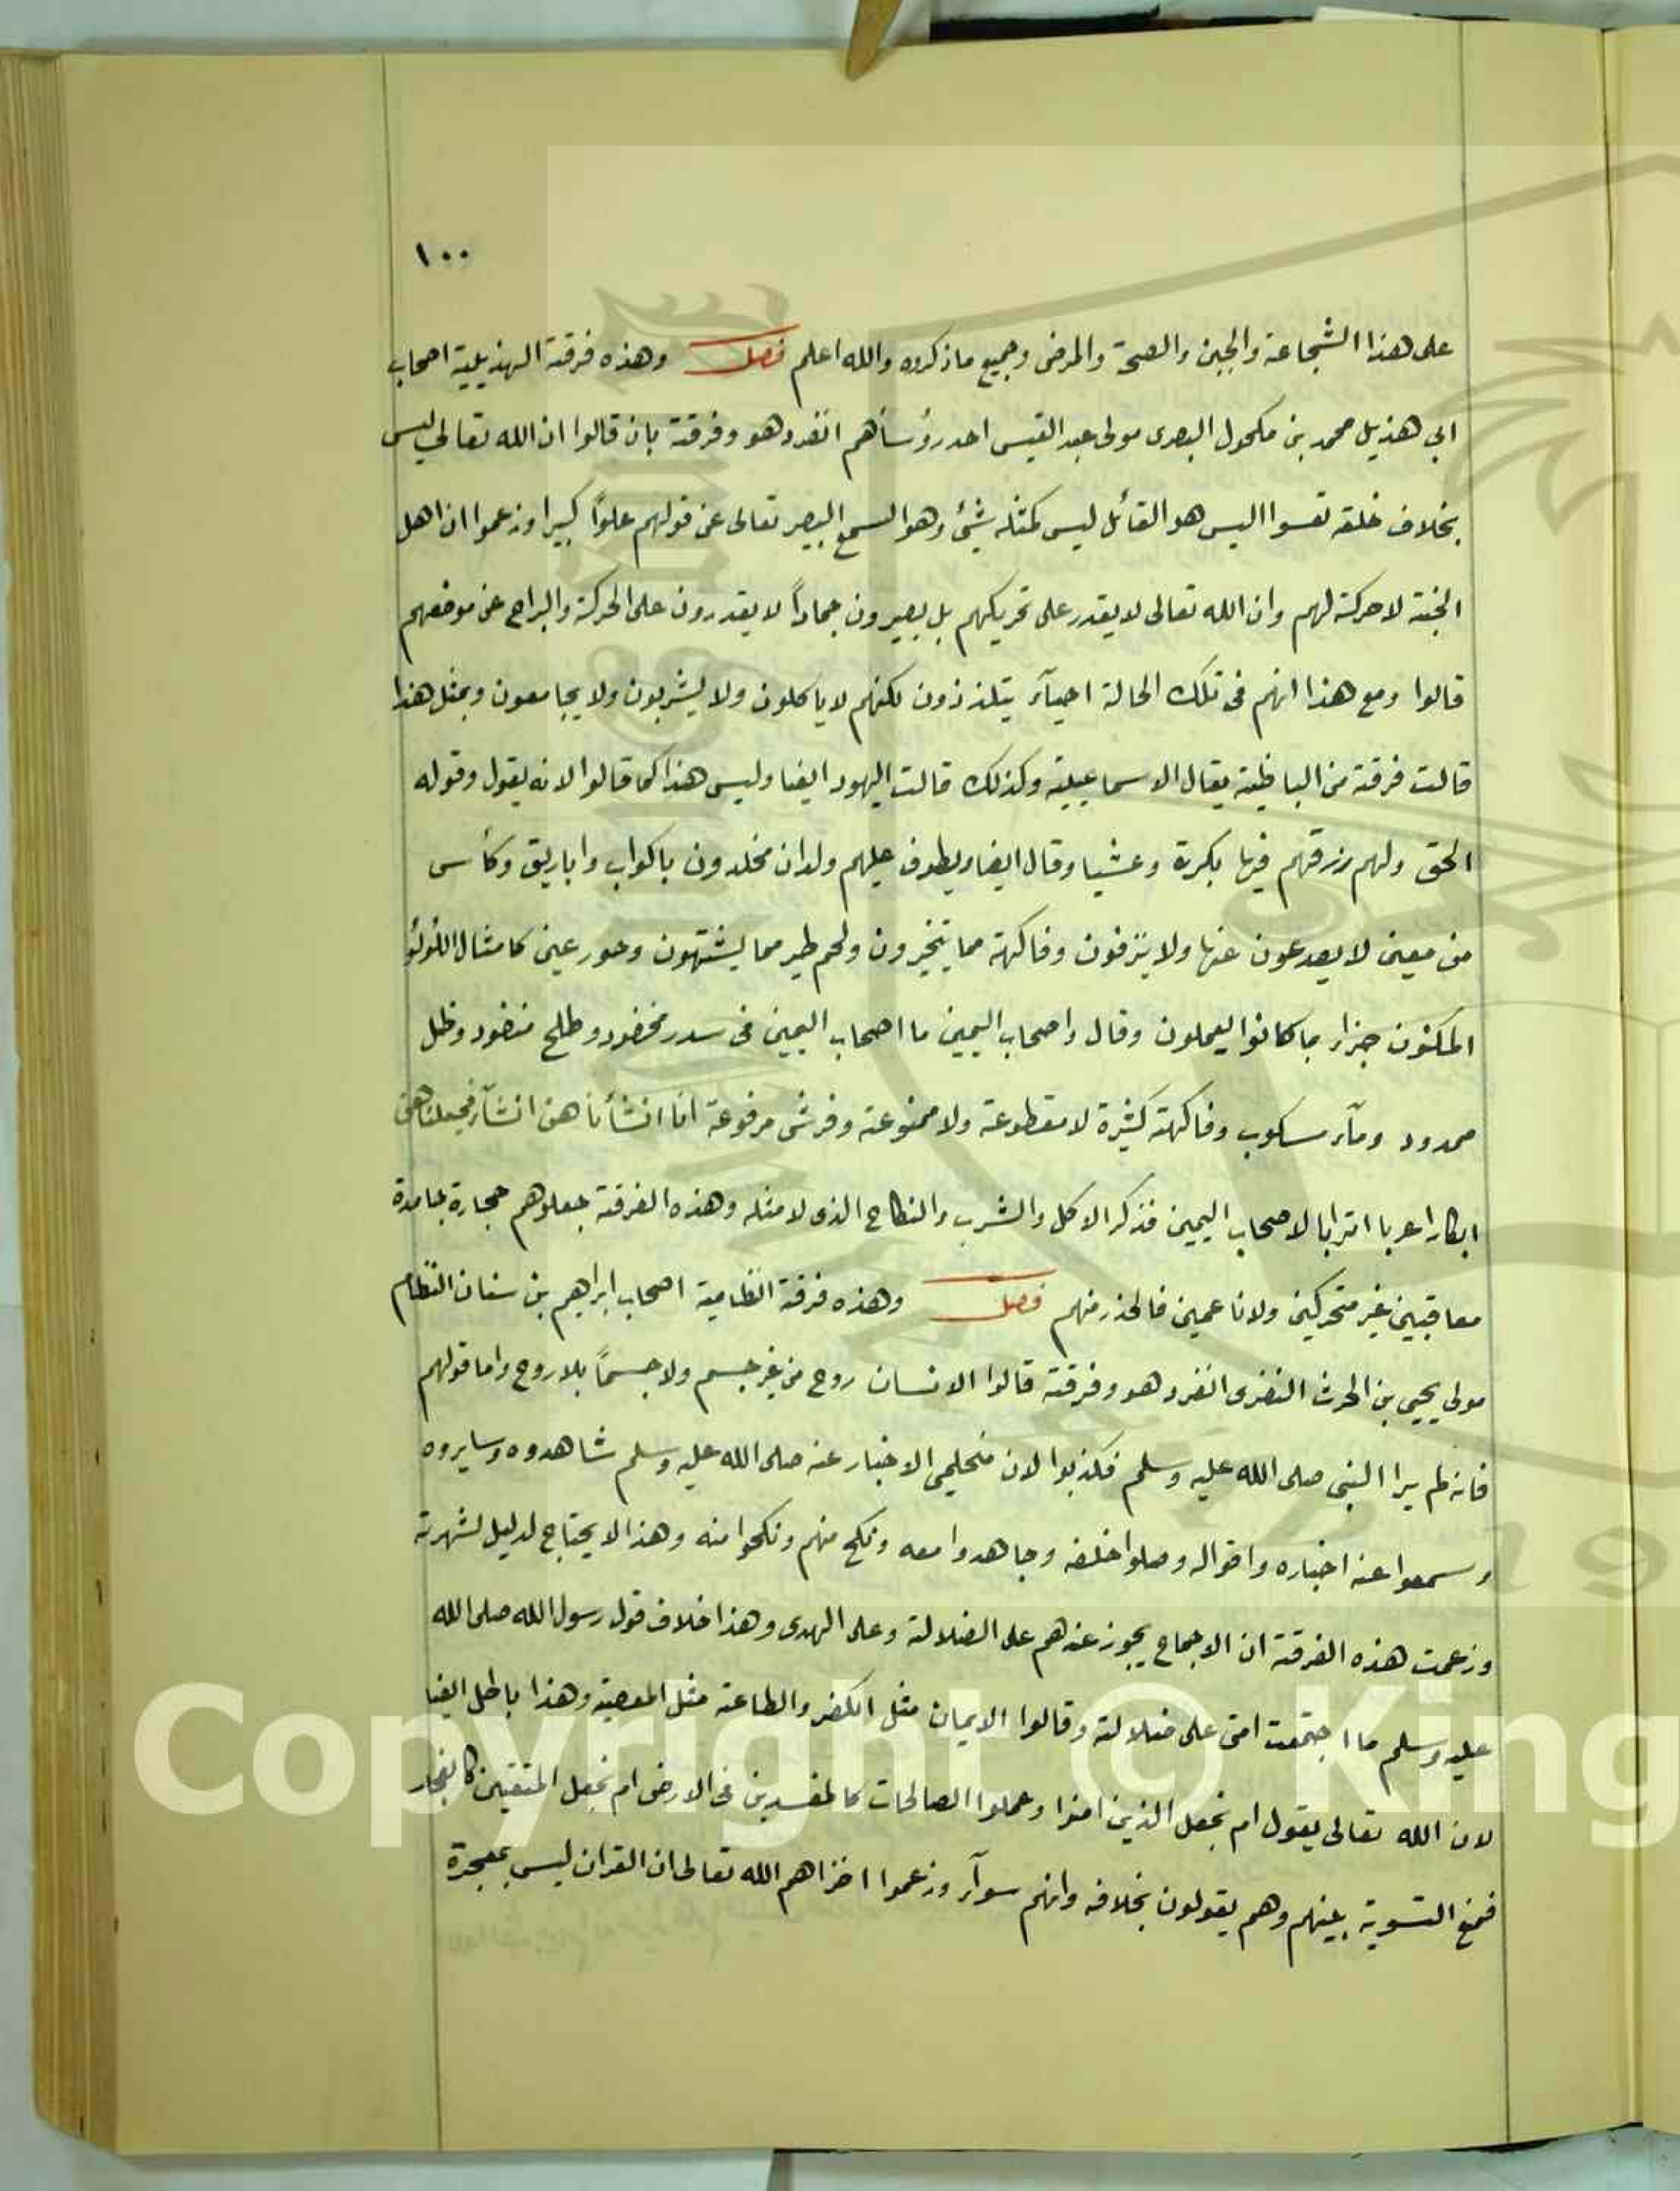 ١٠٠
على هذا الشجاعة والجبن والصحة والمرض وجميع ما ذكروه والله اعلم فصل وهذه فرقة الهذيلية اصحاب
ابي هذيل محمد بن مكحول البصرى مولى عبد القيس احد رؤسآهم انفرد هو وفرقته بان قالوا ان الله تعالى ليس
بخلاف خلقه تعسوا اليس هو القائل ليس كمثله شيئ وهو السميع البصير تعالى عن قولهم علواً كبيرا وزعموا ان اهل
الجنة لا حركة لهم وان الله تعالى لا يقدر على تحريكهم بل يصيرون جماداً لا يقدرون على الحركة والبراح عن موضعهم
قالوا ومع هذا انهم فى تلك الحالة احيآء يتلذذون لكنهم لا ياكلون ولا يشربون ولا يجامعون وبمثل هذا
قالت فرقة من الباطنية يقال الاسماعيلية وكذلك قالت اليهود ايضا وليس هذا كما قالوا لانه يقول وقوله
الحق ولهم رزقهم فيها بكرة وعشيا وقال ايضا ويطوف عليهم ولدان مخلدون باكواب واباريق وكأس
من معين لا يصدعون عنها ولا ينزفون وفاكهة مما يتخيرون ولحم طير مما يشتهون وحور عين كامثال اللؤلؤ
المكنون جزاء بما كانوا يعملون وقال واصحاب اليمين ما اصحاب اليمين فى سدر مخضود وطلح منضود وظل
ممدود ومآء مسكوب وفاكهة كثيرة لا مقطوعة ولا ممنوعة وفرش مرفوعة انا انشأناهن انشآء فجعلناهن
ابكارا عربا اترابا لاصحاب اليمين فذكر الاكل والشرب والنكاح الذى لا مثله وهذه الفرقة جعلوهم حجارة جامدة
معاقبين غير متحركين ولا ناعمين فالحذر منهم فصل وهذه فرقة النظامية اصحاب ابراهيم بن سنان النظام
مولى يحيى بن الحرث انفرد هو وفرقته قالوا الانسان روح من غير جسم ولا جسماً بلا روح واما قولهم
فانه لم يرا النبى صلى الله عليه وسلم فكذبوا لان الاخبار عنه صلى الله عليه وسلم شاهدوه وسايروه
وسمعوا عنه اخباره واقواله وصلوا خلفه وجاهدوا معه ونكح منهم ونكحوا منه وهذا لا يحتاج لدليل لشهرته
وزعمت هذه الفرقة ان الاجماع يجوز عندهم على الضلالة وعلى الهدى وهذا خلاف قول رسول الله صلى الله
عليه وسلم ما اجتمعت امتى على ضلالة وقالوا الايمان مثل الكفر والطاعة مثل المعصية وهذا باطل ايضا
لان الله تعالى يقول ام نجعل الذين امنوا وعملوا الصالحات كالمفسدين فى الارض ام نجعل المتقين كالفجار
فمنع التسوية بينهم وهم يقولون بخلافه وانهم سوآء وزعموا اخزاهم الله تعالى ان القران ليس بمعجزة
Copyright © King